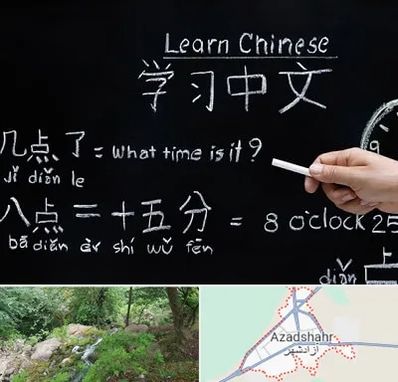 Learn Chinese
学习中文
几点了 = what time is it?
jǐ diǎn le
八点二十五分 = 8 o'clock 25
bā diǎn èr shí wǔ fēn
上
diǎn
9
Azadshahr
آزادشهر